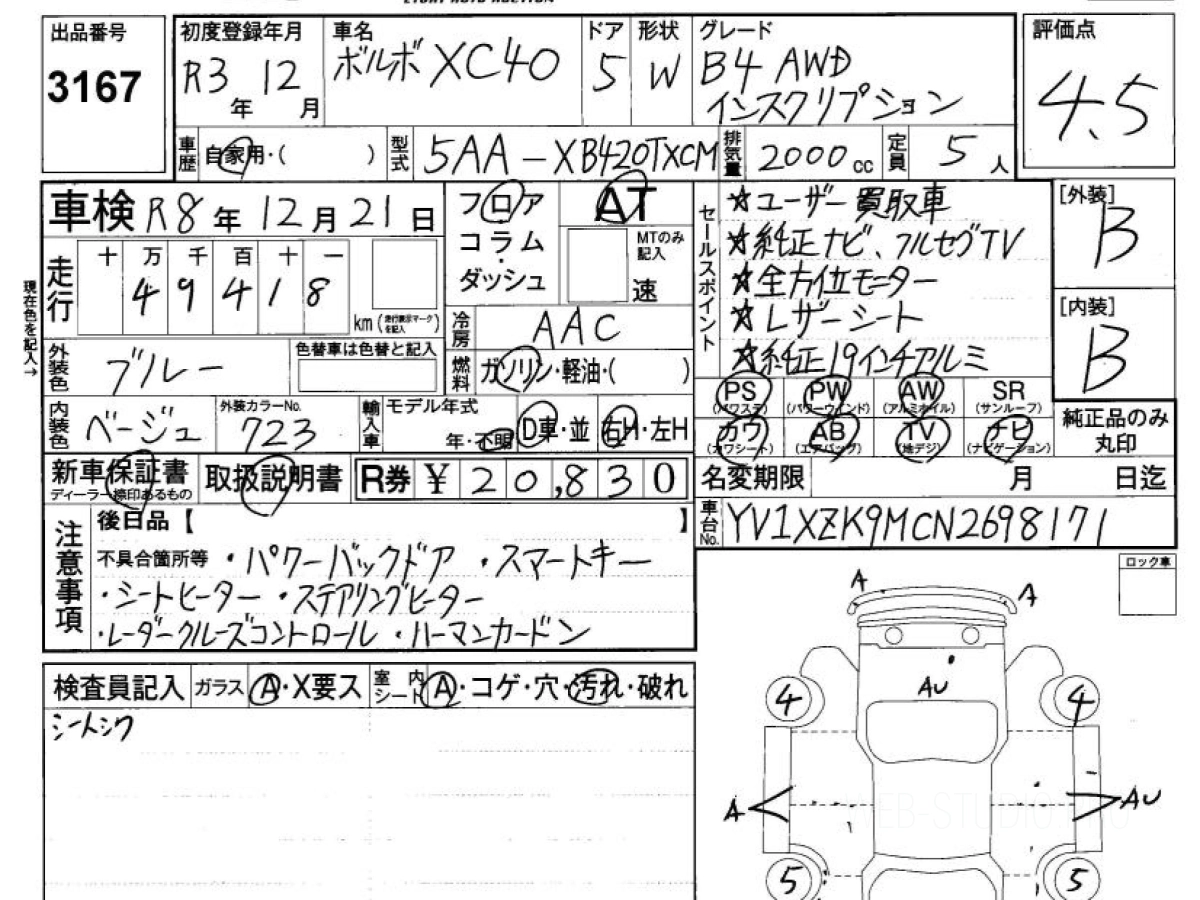 出品番号
3167
初度登録年月
R3年 12月
車名
ボルボ XC40
ドア
5
形状
W
グレード
B4 AWD
インスクリプション
評価点
4.5
車歴
自家用・( )
型式
5AA-XB420TXCM
排気量
2000cc
定員
5人
車検 R8年 12月 21日
フロア
コラム
・
ダッシュ
AT
MTのみ記入
速
セールスポイント
☆ユーザー買取車
☆純正ナビ、フルセグTV
☆全方位モニター
☆レザーシート
☆純正19インチアルミ
[外装]
B
[内装]
B
現在色を記入→
走行
十 万 千 百 十 一
4 9 4 1 8
km(走行表示マークを記入)
冷房
AAC
外装色
ブルー
色替車は色替と記入
燃料
ガソリン・軽油・( )
内装色
ベージュ
外装カラーNo.
723
輸入車
モデル年式
年・不明
D車・並
右H・左H
PS
(パワステ)
PW
(パワーウインド)
AW
(アルミホイル)
SR
(サンルーフ)
カワ
(カワシート)
AB
(エアバッグ)
TV
(地デジ)
ナビ
(ナビゲーション)
純正品のみ丸印
新車保証書
ディーラー捺印あるもの
取扱説明書
R券 ¥20,830
名変期限 月 日迄
車台No.
YV1XZK9MCN2698171
注意事項
後日品【 】
不具合箇所等 ・パワーバックドア ・スマートキー
・シートヒーター ・ステアリングヒーター
・レーダークルーズコントロール ・ハーマンカードン
ロック車
検査員記入
ガラス
A・X要ス
室内シート
A・コゲ・穴・汚れ・破れ
シートシワ
A
A
AU
4
4
A
AU
5
5
WEB-STUDIO.PRO